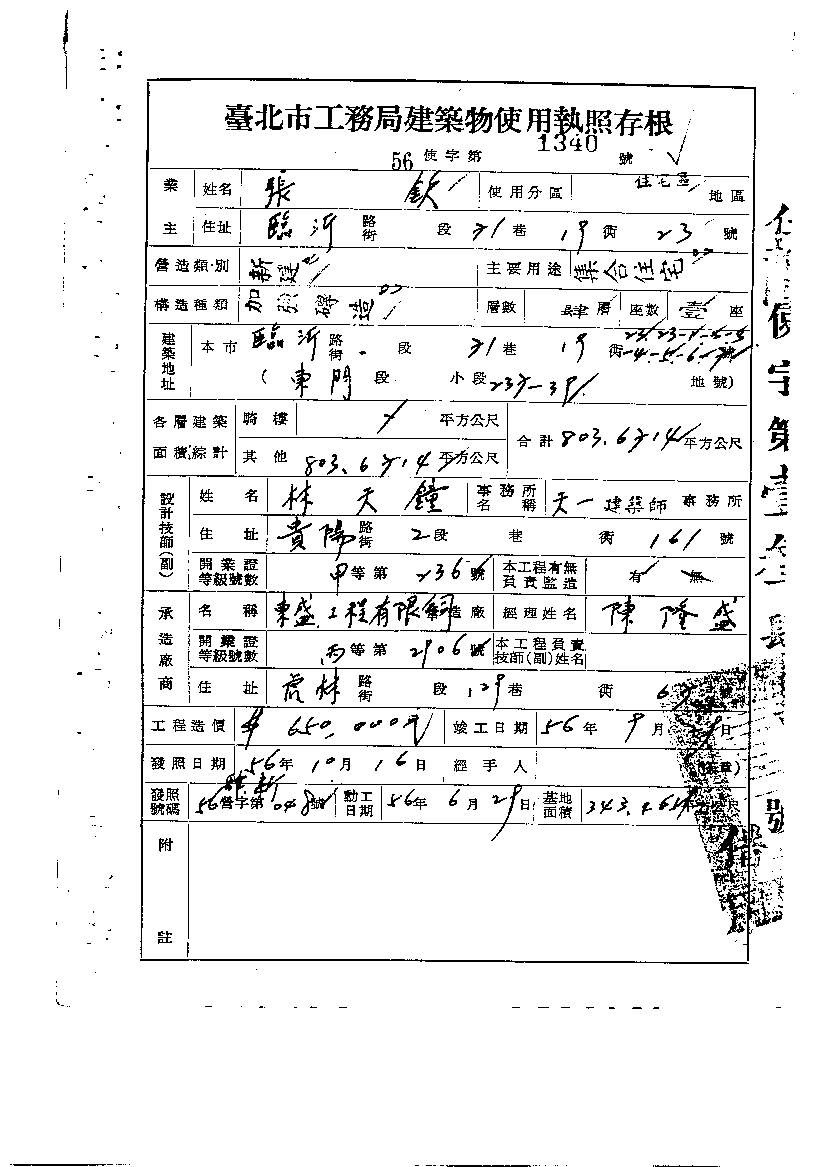 臺北市工務局建築物使用執照存根
56 使字第 1340 號
業主 姓名 張 欽 使用分區 住宅區 地區
住址 臨沂 路街 段 71 巷 19 衖 23 號
營造類別 新建 主要用途 集合住宅
構造種類 加強磚造 層數 肆層 座數 壹座
建築地址 本市 臨沂 路街 段 71 巷 19 衖
( 東門 段 小段 地號)
各層建築面積綜計 騎樓 平方公尺 合計 803.6714 平方公尺
其他 803.6714 平方公尺
設計技師(副) 姓名 林天鐘 事務所名稱 天一建築師 事務所
住址 貴陽 路街 2段 巷 衖 161 號
開業證等級號數 甲等第 2366 號 本工程有無負責監造 有 無
承造廠商 名稱 東盛工程有限 營造廠 經理姓名 陳隆盛
開業證等級號數 丙等第 2906 號 本工程負責技師(副)姓名
住址 虎林 路街 段 129 巷 衖
工程造價 650,000元 竣工日期 56年 9月 日
發照日期 56年10月16日 經手人
發照號碼 56營字第 048號 動工日期 56年 6月 29日 基地面積 平方公尺
附註